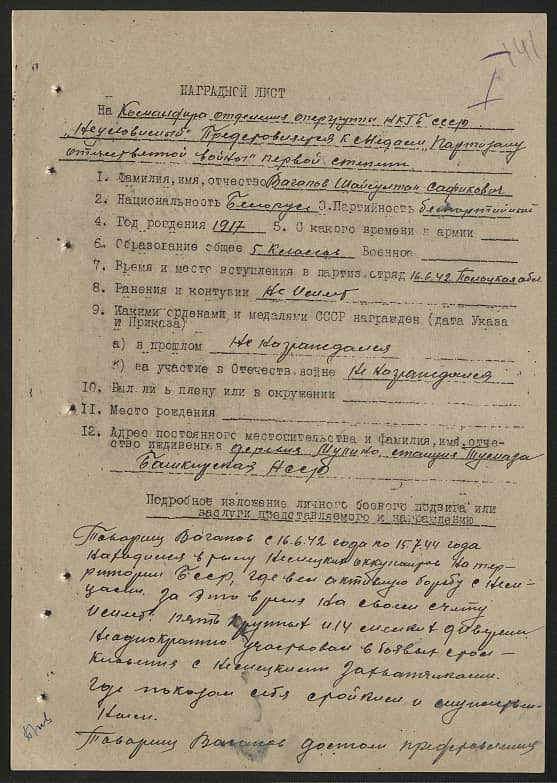 141
I
НАГРАДНОЙ ЛИСТ
На Командира отделения опергруппы НКГБ СССР
„Неуловимый" Представляется к Медали „Партизану
отечественной войны" первой степени.
1. Фамилия, имя, отчество Вагапов Шайсултан Сафикович
2. Национальность Белорус 3. Партийность беспартийный
4. Год рождения 1917 5. С какого времени в армии
6. Образование общее 5 классов Военное
7. Время и место вступления в партиз. отряд 16.6.42 Полоцкая обл.
8. Ранения и контузии Не имеет
9. Какими орденами и медалями СССР награжден (дата Указа
и Приказа)
а) в прошлом Не награждался
б) за участие в Отечеств. войне Не награждался
10. Был ли в плену или в окружении
11. Место рождения
12. Адрес постоянного местожительства и фамилия, имя, отче-
ство иждивенцев деревня станция Туймаза
Башкирская АССР
Подробное изложение личного боевого подвига или
заслуги представляемого к награждению
Товарищ Вагапов с 16.6.42 года по 15.7.44 года
находился в тылу Немецких оккупантов на тер-
ритории БССР, где вел активную борьбу с Неме-
цами. За это время на своем счету
имеет: пять крупных и 14 мелких диверсий
Неоднократно участвовал в боевых стол-
кновениях с Немецкими захватчиками.
где показал себя стойким и
Товарищ Вагапов достоин представления